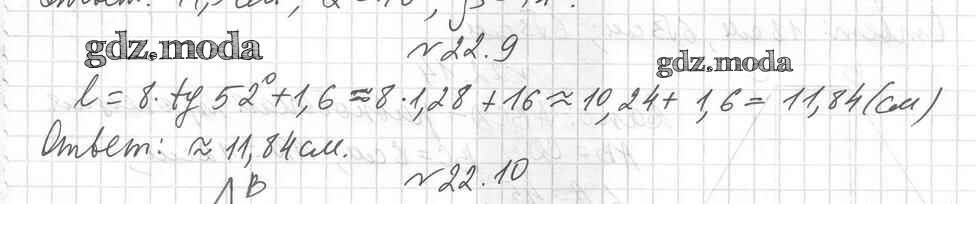 gdz.moda
№22.9
gdz.moda
l = 8 · tg 52° + 1,6 ≈ 8 · 1,28 + 16 ≈ 10,24 + 1,6 = 11,84 (см)
Ответ: ≈ 11,84 см.
B
№22.10